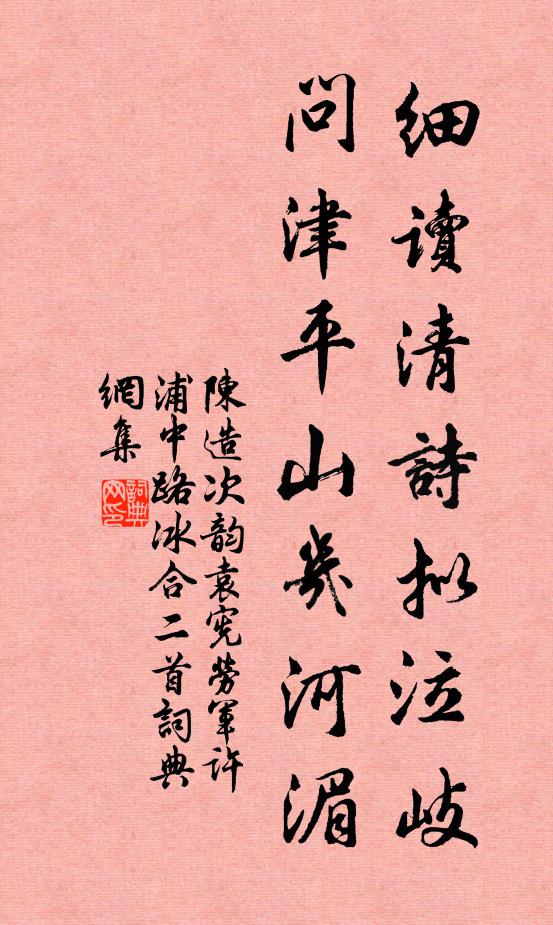 細讀清詩擬泣岐
問津平山幾河湄
陳造次韵袁憲勞軍許
浦中路冰合二首詞典
網集
詞典網印